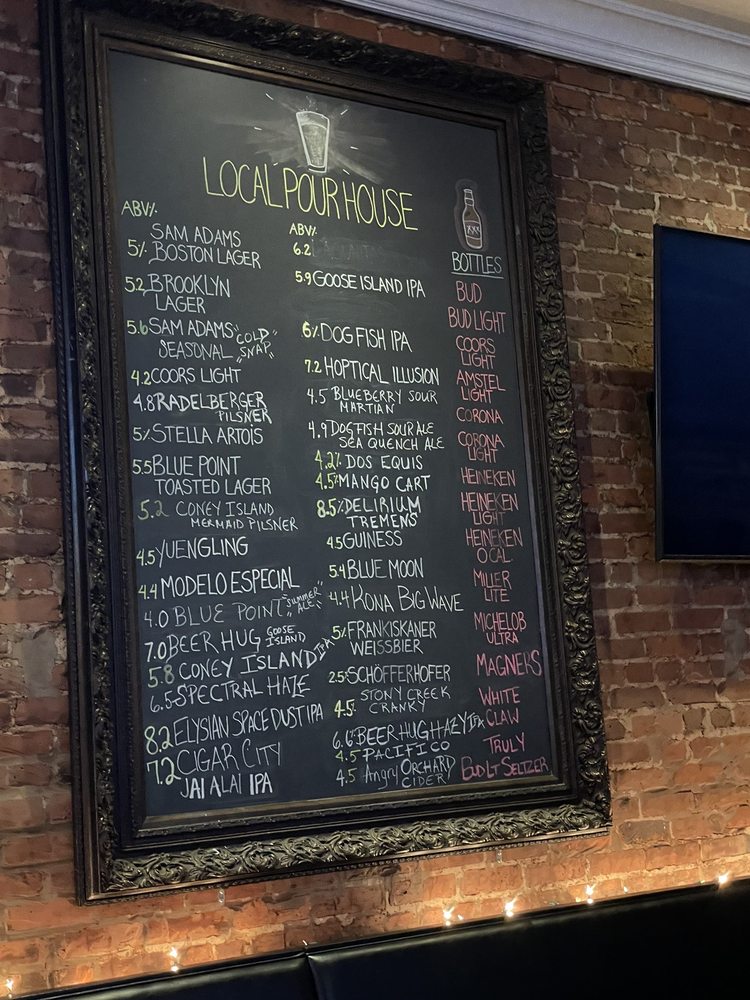 LOCAL POUR HOUSE
ABV%
SAM ADAMS
5% BOSTON LAGER
5.2 BROOKLYN
LAGER
5.6 SAM ADAMS "COLD
SEASONAL SNAP"
4.2 COORS LIGHT
4.8 RADELBERGER
PILSNER
5% STELLA ARTOIS
5.5 BLUE POINT
TOASTED LAGER
5.2 CONEY ISLAND
MERMAID PILSNER
4.5 YUENGLING
4.4 MODELO ESPECIAL
4.0 BLUE POINT "SUMMER
ALE"
7.0 BEER HUG GOOSE
ISLAND
5.8 CONEY ISLAND IPA
6.5 SPECTRAL HAZE
8.2 ELYSIAN SPACE DUST IPA
7.2 CIGAR CITY
JAI ALAI IPA
ABV%
6.2
5.9 GOOSE ISLAND IPA
6% DOG FISH IPA
7.2 HOPTICAL ILLUSION
4.5 BLUEBERRY SOUR
MARTIAN
4.9 DOGFISH SOUR ALE
SEA QUENCH ALE
4.2% DOS EQUIS
4.5% MANGO CART
8.5% DELIRIUM
TREMENS
4.5 GUINESS
5.4 BLUE MOON
4.4 KONA BIG WAVE
5% FRANKISKANER
WEISSBIER
2.5 SCHÖFFERHOFER
STONY CREEK
4.5% CRANKY
6.6% BEER HUG HAZY IPA
4.5 PACIFICO
4.5 Angry ORCHARD
CIDERY
XXX
BOTTLES
BUD
BUD LIGHT
COORS
LIGHT
AMSTEL
LIGHT
CORONA
CORONA
LIGHT
HEINEKEN
HEINEKEN
LIGHT
HEINEKEN
O CAL
MILLER
LITE
MICHELOB
ULTRA
MAGNERS
WHITE
CLAW
TRULY
BUD LT SELTZER